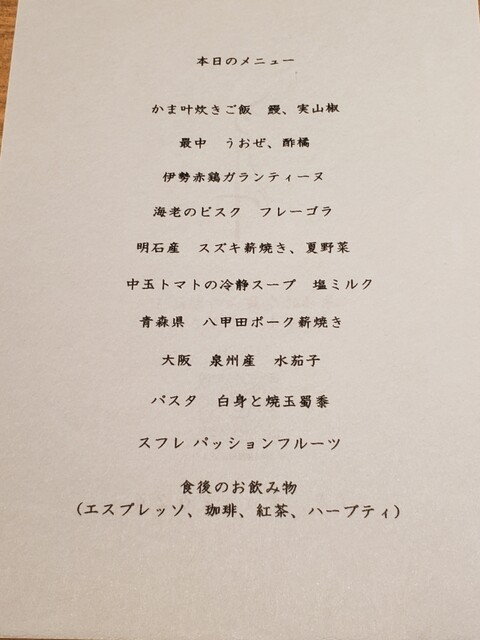 本日のメニュー
かま叶炊きご飯　鰻、実山椒
最中　うおぜ、酢橘
伊勢赤鶏ガランティーヌ
海老のビスク　フレーゴラ
明石産　スズキ薪焼き、夏野菜
中玉トマトの冷静スープ　塩ミルク
青森県　八甲田ポーク薪焼き
大阪　泉州産　水茄子
パスタ　白身と焼玉蜀黍
スフレ パッションフルーツ
食後のお飲み物
（エスプレッソ、珈琲、紅茶、ハーブティ）